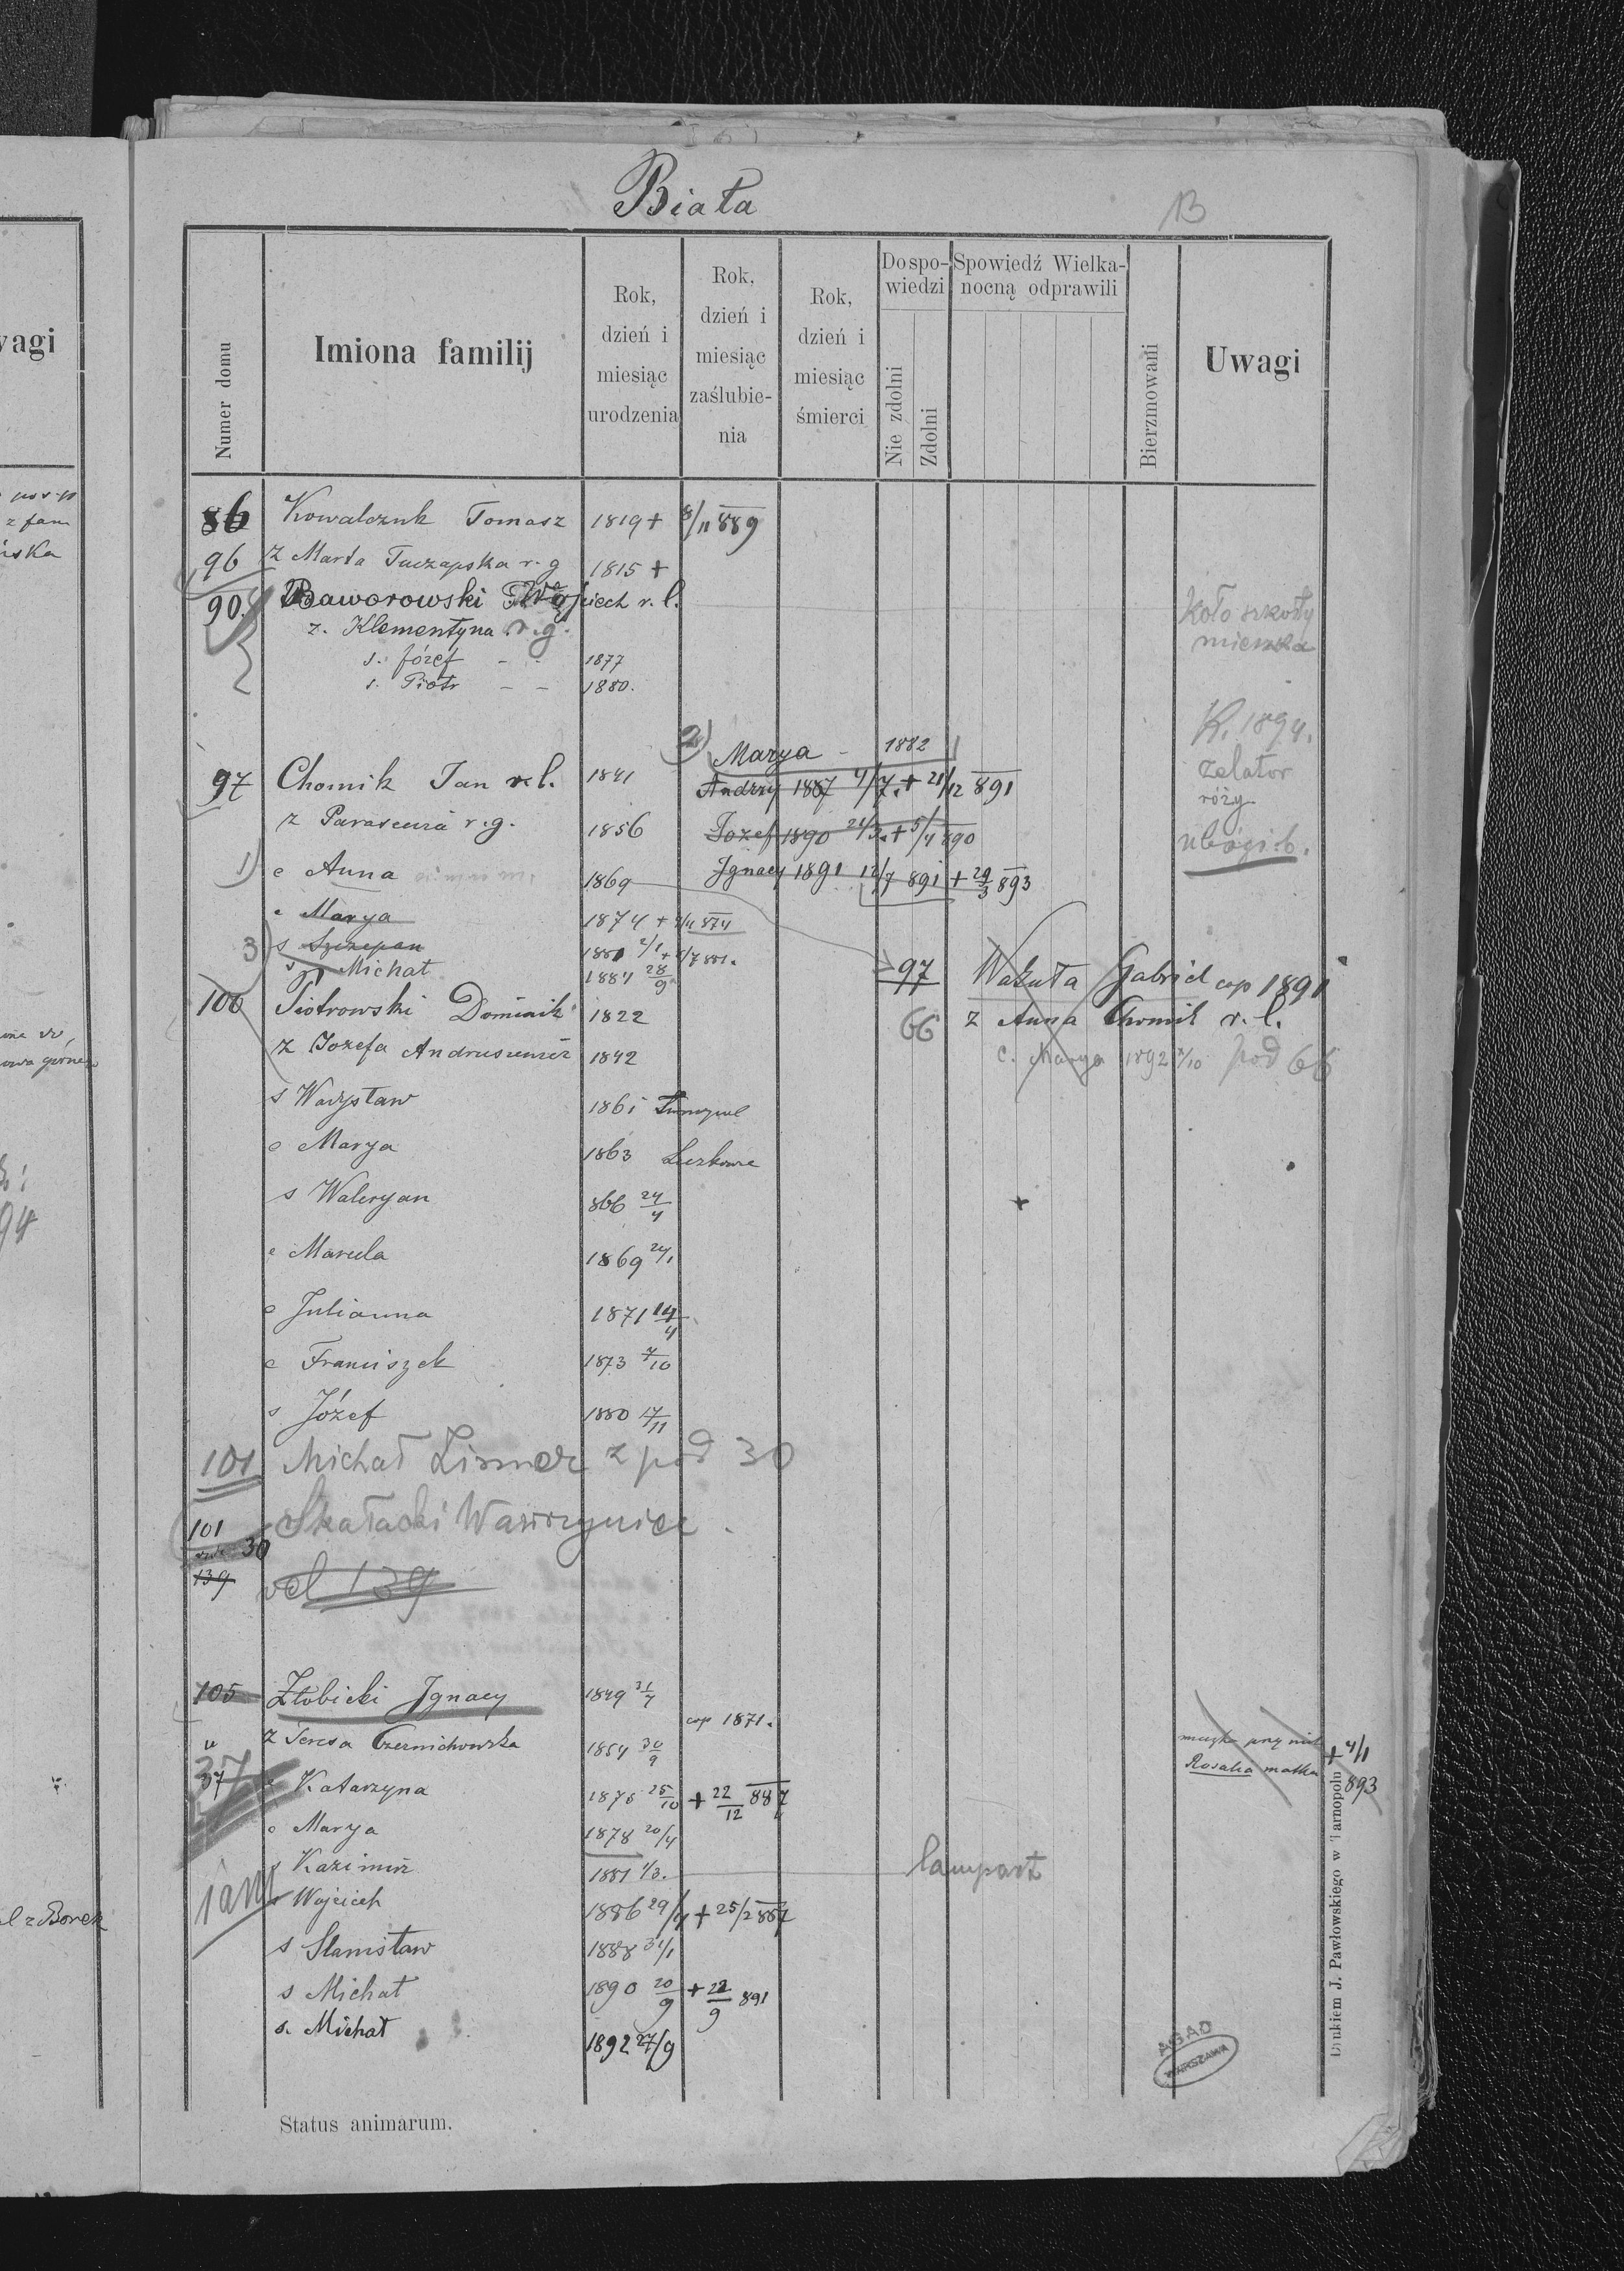 Biała
B
Numer domu
Imiona familij
Rok, dzień i miesiąc urodzenia
Rok, dzień i miesiąc zaślubienia
Rok, dzień i miesiąc śmierci
Do spowiedzi
Nie zdolni
Zdolni
Spowiedź Wielkanocną odprawili
Bierzmowani
Uwagi
vagi
86 Kowalczuk Tomasz 1819 + 8/11 889
96 z Marta r. g 1815 +
90. Baworowski Wojciech r. l.
z. Klementyna r. g.
s. Józef - - 1877
s. Piotr - - 1880.
Koło szkoły
mieszka
K. 1894.
zelator
róży
ubogi b.
2) Marya - 1882
97 Chomik Jan r. l. 1841 Andrzy 1887 4/7. + 21/12 891
z Parascewia r. g. 1856 Jozef 1890 + 5/4 890
1) c Anna 1869 Ignacy 1891 12/7 891 + 29/3 893
c Marya 1874 +
3) s Szczepan
s Michał 1884 28/9
97 Gabriel cop 1891
66 z Anna Chomik r. l.
c. Marya 1892 2/10 pod 66
100 Piotrowski Dominik 1822
z Jozefa 1842
s Władysław 1861
c Marya 1863
s Waleryan 866 24/4 +
c Marcela 1869 24/1
c Julianna 1871 14/4
c Franciszek 1873 7/10
s Józef 1880 17/11
101 Michał z pod 30
101 Skałacki Wawrzyniec.
30
139 vel 139
105 Złobicki Ignacy 1849 31/7
cop 1871.
z Teresa Czernichowska 1854 30/9
37 c Katarzyna 1875 25/10 + 22/12 887
Rosalia matka + 4/1 893
c Marya 1878 20/4
s Kazimirz 1881 1/3. lampart
s Wojciech 1886 29/4 + 25/2 887
s Stanisław 1888 31/1
s Michał 1890 20/9 + 22/9 891
s. Michał 1892 27/9
Status animarum.
Drukiem J. Pawłowskiego w Tarnopolu
AGAD
WARSZAWA